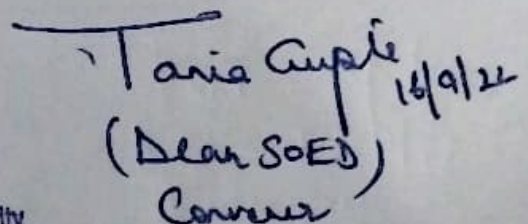 Tania Gupta 16/9/22
(Dean SOED)
Convener